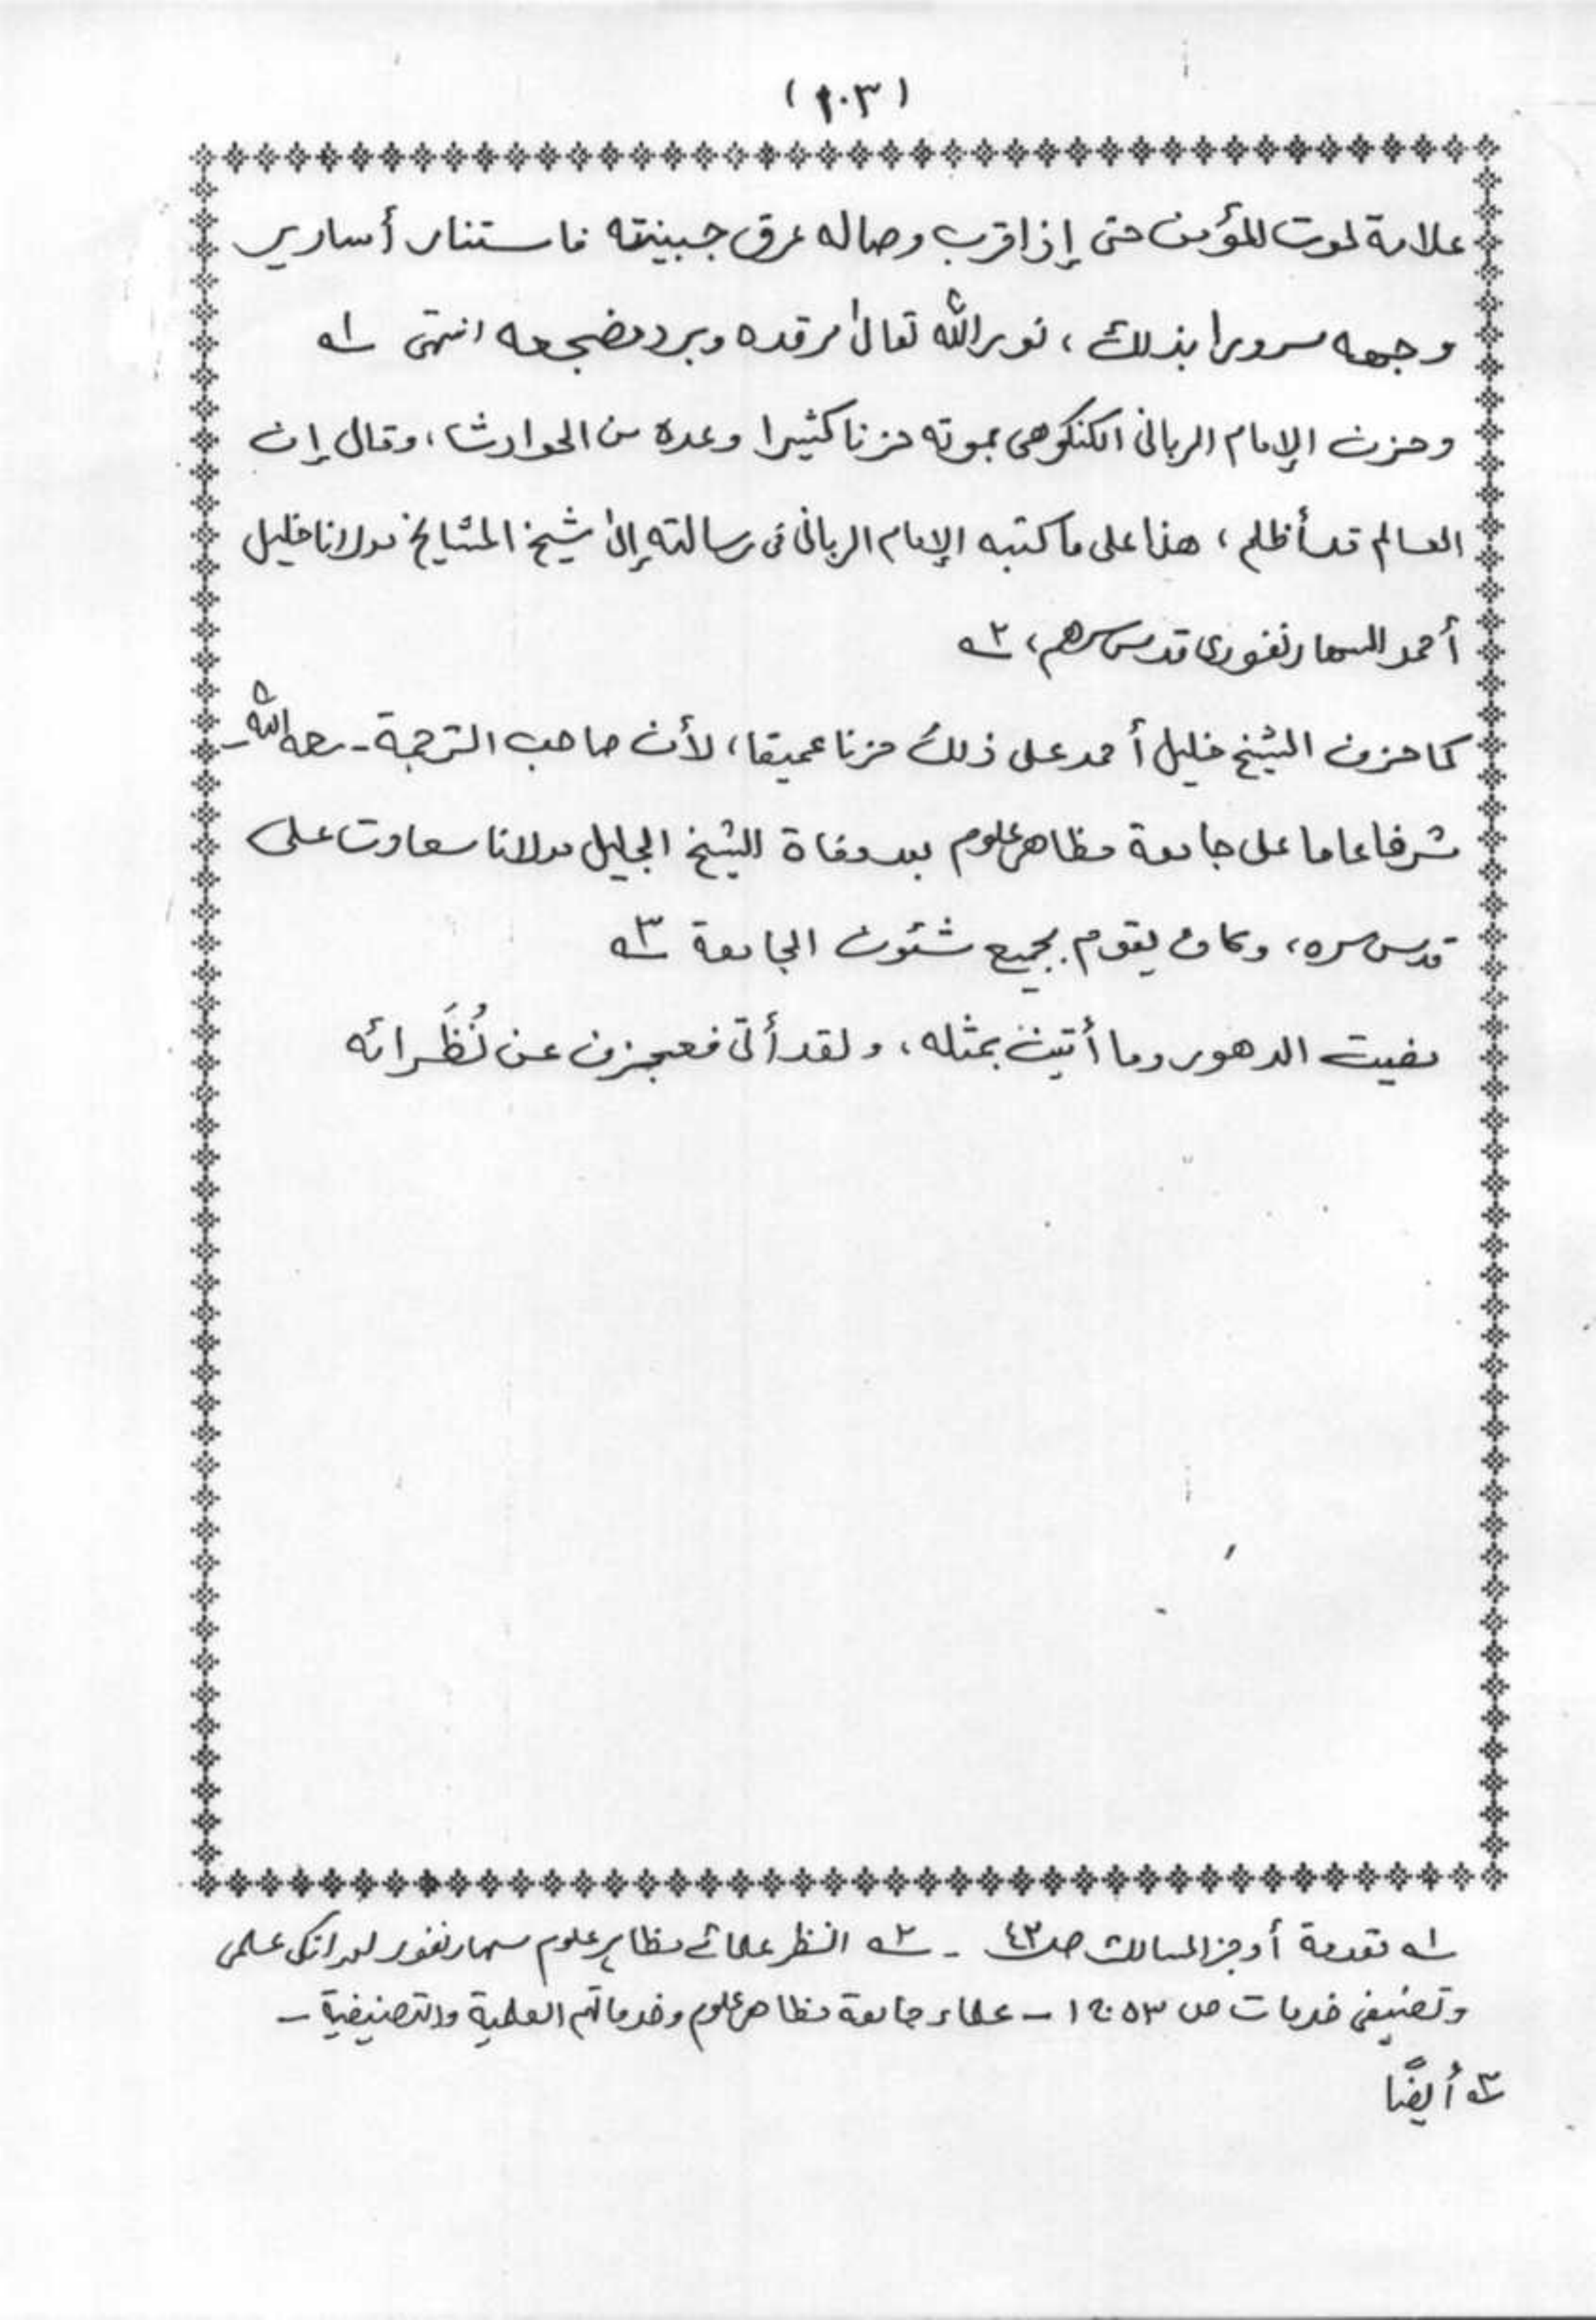 (١٠٣)
علامة لموت المؤمن حتى إذا قرب وصاله عرق جبينته فاستنار أسارير
وجهه سرورا بذلك، نور الله تعالى مرقده وبرد مضجعه انتهى ١ه
وحزن الإمام الربانى الكنكوهى بموته حزنا كثيرا وعده من الحوادث، وقال إن
العالم قد أظلم، هذا على ما كتبه الإمام الربانى فى رسالته إلى شيخ المشايخ مولانا خليل
أحمد السهارنفورى قدس سرهم، ٢ه
كما حزن الشيخ خليل أحمد على ذلك حزنا عميقا، لأن صاحب الترجمة - رحمه الله -
مشرفا عاما على جامعة مظاهر علوم بعد وفاة الشيخ الجليل مولانا سعادت على
قدس سره، وكان يقوم بجميع شئون الجامعة ٣ه
مضيت الدهور وما أتين بمثله، ولقد أتى فعجزن عن نُظَرائه
١ه تقدمة أوجز المسالك صـ ٤٣ - ٢ه انظر علمائے مظاہر علوم سہارنفور اور انکی علمی
وتصنیفی خدمات ص ٥٣ ج ١ - علماء جامعة مظاهر علوم وخدماتهم العلمية والتصنيفية -
٣ه أيضًا